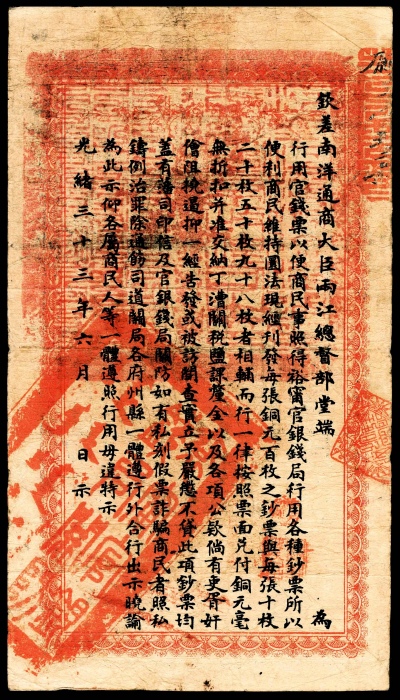 欽差南洋通商大臣兩江總督部堂端 為
行用官錢票以便商民事照得裕甯官銀錢局行用各種鈔票所以
便利商民維持圜法現經刊發每張銅元百枚之鈔票與每張十枚
二十枚五十枚九十八枚者相輔而行一律按照票面兌付銅元毫
無折扣并准交納丁漕關稅鹽課釐金以及各項公欵倘有吏胥奸
儈阻撓遏抑一經告發或被訪聞查實立予嚴懲不貸此項鈔票均
蓋有藩司印信及官銀錢局關防如有私刻假票詐騙商民者照私
鑄例治罪除通飭司道關局各府州縣一體遵行外合行出示曉諭
為此示仰各屬商民人等一體遵照行用毋違特示
光緒三十三年六月 日示